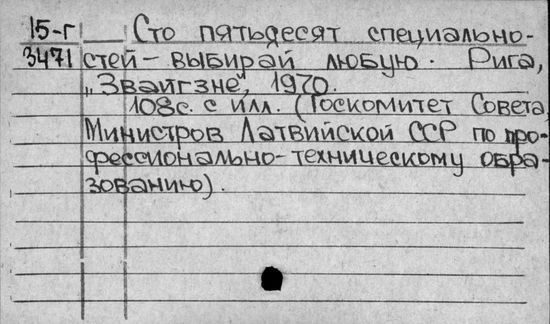 15-г Сто пятьдесят специально-
3471 стей - выбирай любую. Рига,
„Звайгзне", 1970.
108с. с илл. (Госкомитет Совета
Министров Латвийской ССР по про-
фессионально-техническому обра-
зованию).